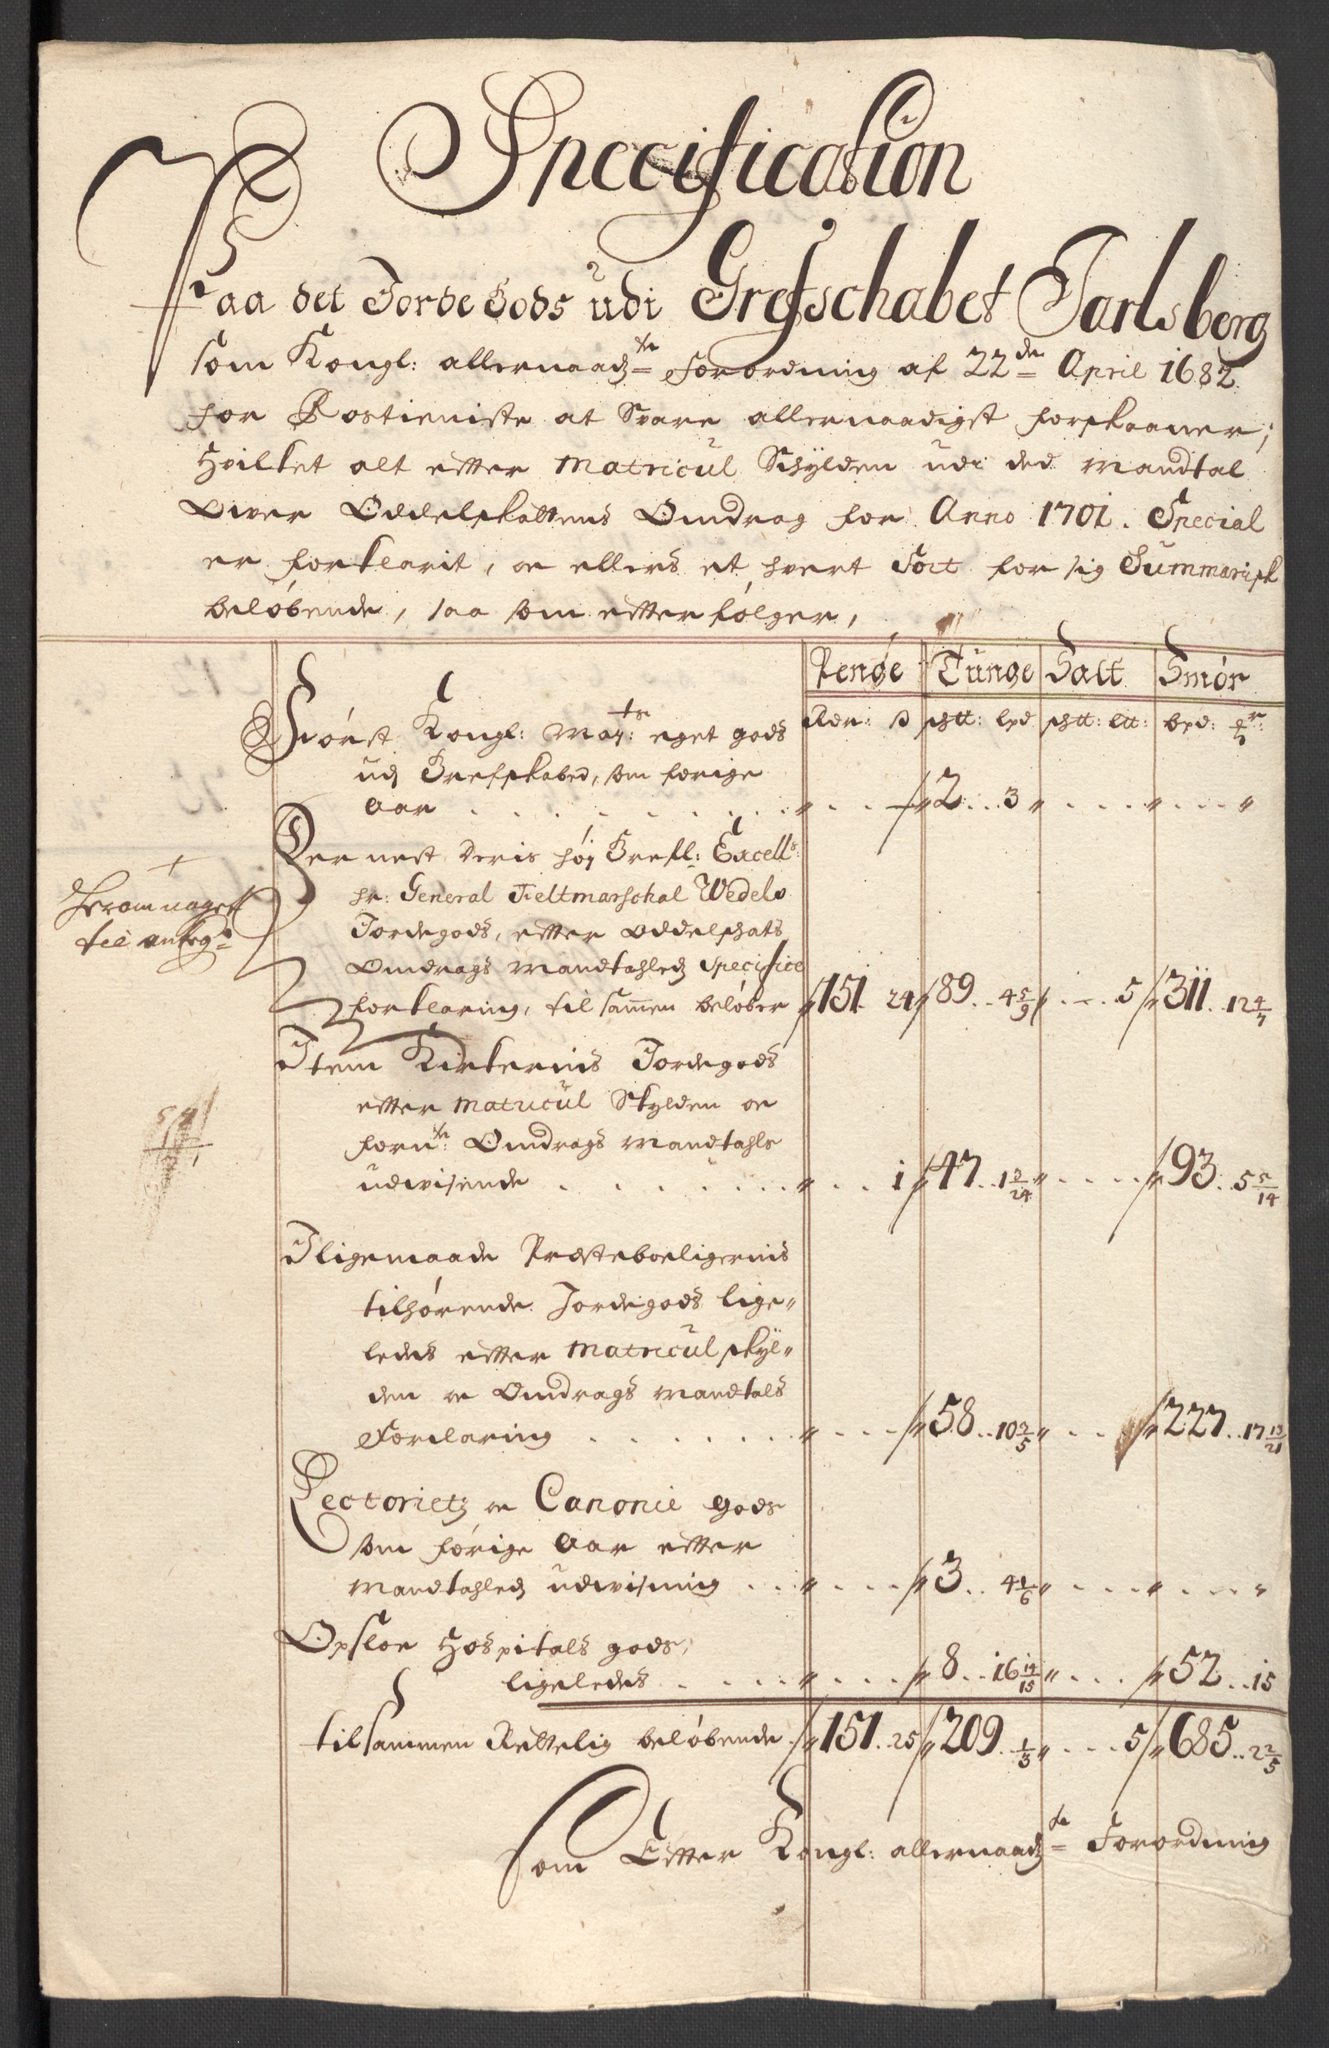 Specification
Paa det Jorde Gods udi Grefschabet Jarlsberg
som Kongl: allernaadste Forordning af 22de April 1682
for Rostieniste at Svare allernaadigst forskaaner;
Hvilket alt efter Matricul Schÿlden udi ded Mandtal
over Oddelskattens Omdrag for Anno 1701. Special
er forklarit, oc ellers et hvert Sort for sig Summarisk
beløbende, saa som efterfølger,
Penge Tunge Salt Smør
Rdr: ß schtt: lpd schtt: ltt: bpd:
Først Kongl: Mayts: eget gods
udj Grefskabed, som forige
Aar . . . . . . . . " . . . " 2 . . 3 " . . . . " . . . "
Der nest Deris høj Grefl: Excells:
hr: General Feltmarschal Wedels
Jordegods, efter Oddelschats
Omdrags Mandtahledz Specifice
forklaring, til sammen beløber " 151 . 24 " 89 . . 4 5/9 " . . . 5 " 311 . . 12 4/7
til antegn
Item Kirkernis Jordegods
efter Matricul Skylden oc
fornte: Omdrags Mandtahls
udvisende . . . . . . " . . . 1 " 47 . . 1 5/24 " . . . . " 93 . . 5 5/14
Iligemaade Præsteboeligernis
tilhørende Jordegods lige"
ledes efter Matricul skÿl"
den oc Omdrags Mandtals
Forclaring . . . . . . " . . . . " 58 . . 10 3/5 " . . . " 227 . . 17 13/21
Rectorietz oc Canonie gods
som forige Aar efter
Mandtahledz udvisning . . . " . . . . " 3 . . 4 1/6 " . . . . " . . . . "
Opsloe Hospitals gods,
ligeledes . . . . . " . . . . " 8 . . 16 14/15 " . . . . " 52 . . 15
tilsammen Rettelig beløbende " 151 . 25 " 209 . 1/3 " . . . 5 " 685 . . 2 2/5
Som Efter Kongl: allernaadste Forordning